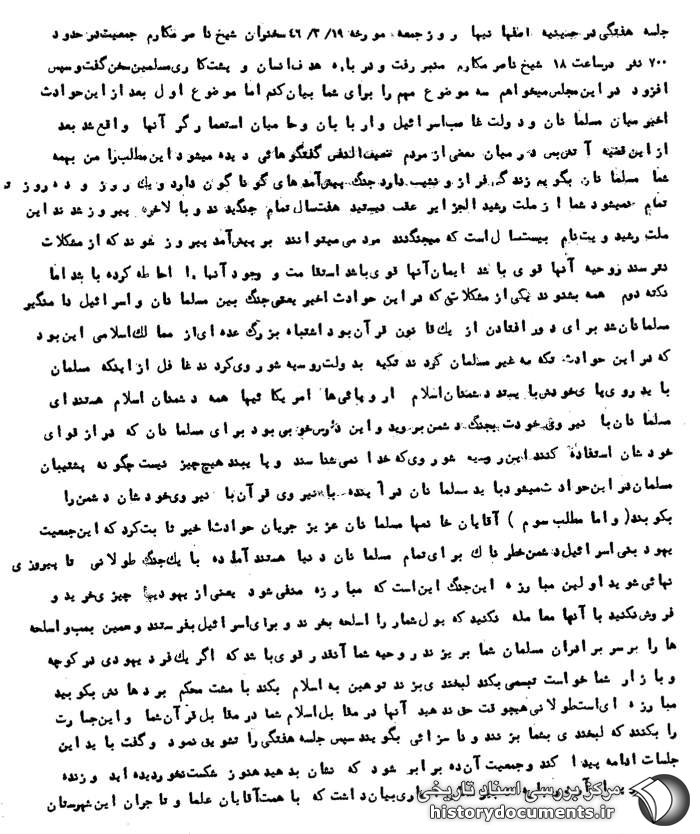 جلسه هفتگی در حسینیه اصفهانیها روز جمعه مورخه ۴۶/۳/۱۹ سخنران شیخ ناصر مکارم جمعیت در حدود
۷۰۰ نفر در ساعت ۱۸ شیخ ناصر مکارم منبر رفت و در باره هدف انسان و پشت کاری مسلمین سخن گفت و سپس
افزود در این مجلس میخواهم سه موضوع مهم را برای شما بیان کنم اما موضوع اول بعد از این حوادث
اخیر میان مسلمانان و دولت غاصب اسرائیل و اربابان و حامیان استعمارگر آنها واقع شد بعد
از این قضیه آتش بس در میان بعضی از مردم ضعیف النفس گفتگوهائی دیده میشود این مطلب را من بهمه
شما مسلمانان بگویم زندگی فراز و نشیب دارد جنگ پیش آمدهای گوناگون دارد و یک روز و ده روز
تمام نمیشود شما از ملت رشید الجزایر عقب نیستید هفت سال تمام جنگیدند و بالاخره پیروز شدند این
ملت رشید ویت نام بیست سال است که میجنگند مردمی میتوانند بر پیش آمد پیروز شوند که از مشکلات
نترسند روحیه آنها قوی باشد ایمان آنها قوی باشد استقامت و وجود آنها را احاطه کرده باشد اما
نکته دوم همه بشنوند یکی از مشکلاتی که در این حوادث اخیر یعنی جنگ بین مسلمانان و اسرائیل دامنگیر
مسلمانان شد برای دور افتادن از یک قانون قرآن بود اشتباه بزرگ عده ای از ممالک اسلامی این بود
که در این حوادث تکه به غیر مسلمان کردند تکیه بدولت روسیه شوروی کردند غافل از اینکه مسلمان
باید روی پای خودش بایستد دشمنان اسلام اروپائی ها امریکائیها همه دشمنان اسلام هستند ای
مسلمانان با نیروی خودت بجنگ دشمن بروید و این درس خوبی بود برای مسلمانان که در از قوای
خودشان استفاده کنند این روسیه شوروی که خدا نمی شناسند و پایبند هیچ چیز نیست چگونه پشتیبان
مسلمان در این حوادث میشود باید مسلمانان در آینده با نیروی قرآن با نیروی خودشان دشمن را
بکوبند (و اما مطلب سوم) آقایان خانمها مسلمانان عزیز جریان حوادث اخیر ثابت کرد که این جمعیت
یهود بنی اسرائیل دشمن خطرناک برای تمام مسلمانان دنیا هستند آماده با یک جنگ طولانی تا پیروزی
نهائی شوید اولین مبارزه این جنگ این است که مبارزه منفی شود یعنی از یهودیها چیزی خرید و
فروش نکنید با آنها معامله نکنید که پول شما را اسلحه بخرند و برای اسرائیل بفرستند و همین بمب و اسلحه
ها را بر سر برادران مسلمان شما بریزند روحیه شما آنقدر قوی باشد که اگر یک فرد یهودی در کوچه
و بازار شما خواست تبسمی بکند لبخندی بزند توهین به اسلام بکند با مشت محکم بر دهانش بکوبید
مبارزه ای است طولانی هیچوقت حق ندهید آنها در مقابل اسلام شما در مقابل قرآن شما و این جسارت
را بکنند که لبخندی بشما بزنند و ناسزائی بگویند سپس جلسه هفتگی را تشویق نمود و گفت باید این
جلسات ادامه پیدا کند و جمعیت آن ده برابر شود که نشان بدهید هنوز شکست نخوردیده اید و زنده
بیان داشت که با همت آقایان علما و تاجران این شهرستان
مرکز بررسی اسناد تاریخی
historydocuments.ir